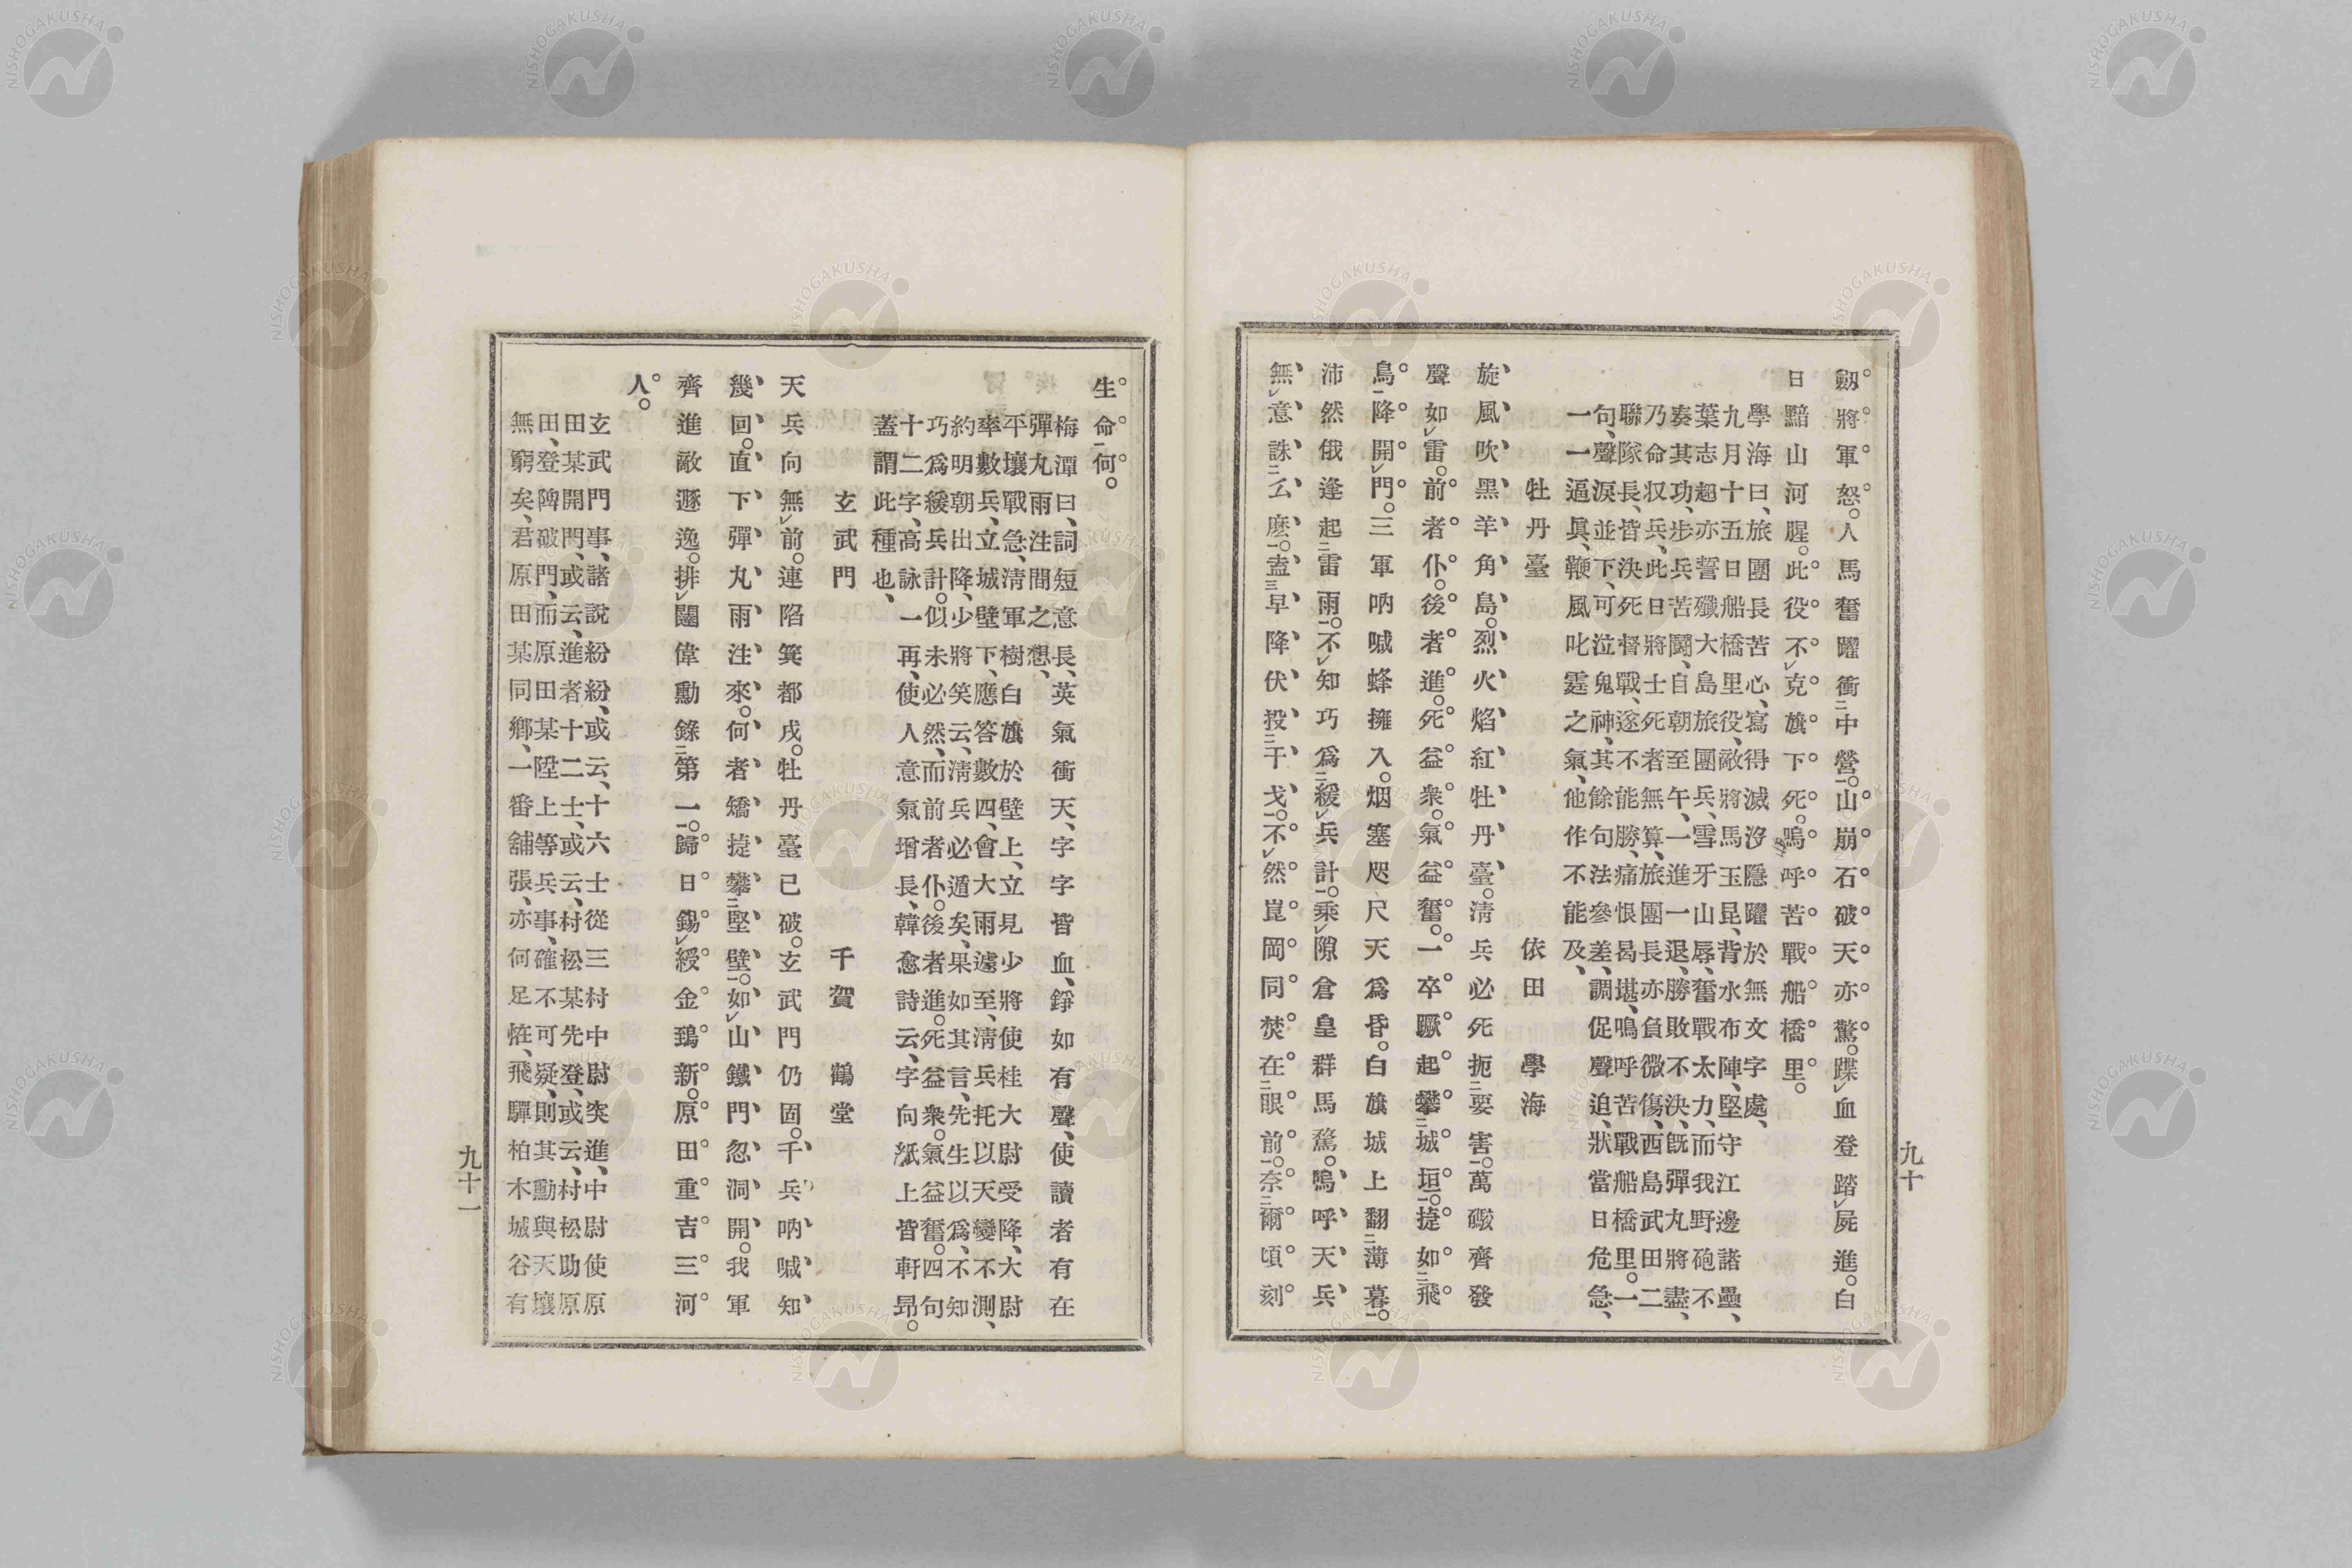 劔將軍怒。人馬奮躍衝中營。山崩石破天亦驚。蹀血登踏屍進。白
日黯山河腥。此役不克旗下死。嗚呼苦戰船橋里。
學海曰、旅團長苦心、寫得滅沒隱躍於無文字處、
九月十五日船橋里役、敵將馬玉昆、背水布陣、堅守江邊諸壘、
葉志超亦誓殲大島旅團兵、雪牙山辱、奮戰太力、而我野砲不
奏其功、步兵苦鬪、自朝至午、一進一退、勝敗不決、既彈丸將盡、
乃命収兵、此日將士死者無算、旅團長亦負微傷、西島武田二
聯隊長、皆決死督戰、遂不能勝、痛恨曷堪、嗚呼苦戰船橋里。一
句、聲淚並下、可泣鬼神、其餘句法參差、調促聲迫、狀當日危急、
一一逼眞、鞭風叱霆之氣、他作不能及、
牡丹臺　依田　學海
旋風吹黑羊角島。烈火焰紅牡丹臺。淸兵必死扼要害。萬礮齊發
聲如雷。前者仆。後者進。死益衆。氣益奮。一卒蹶起攀城垣。捷如飛
鳥降開門。三軍吶喊蜂擁入。烟塞咫尺天爲昏。白旗城上翻薄暮。
沛然俄逢起雷雨。不知巧爲緩兵計。乘隙倉皇群馬騖。嗚呼天兵
無意誅么麽。盍早降伏投干戈。不然崑岡同焚在眼前。奈爾頃刻
九十
生命何。
梅潭曰、詞短意長、英氣衝天、字字皆血、錚如有聲、使讀者有在
彈丸雨注間之想、
平壤戰急、淸軍樹白旗於壁上、立見少將使桂大尉受降、大尉
率數兵、立城壁下、應答數四、會大雨遽至、淸兵托以天變不測、
約明朝出降、少將笑云、淸兵必遁矣、果如其言、先生以爲、不知
巧爲緩兵計。似未必然、而前者仆。後者進。死益衆。氣益奮。四句
十二字、高詠一再、使人意氣增長、韓愈詩云、字向紙上皆軒昂。
蓋謂此種也、
玄武門　千賀　鶴堂
天兵向無前。連陷箕都戍。牡丹臺已破。玄武門仍固。千兵吶喊知
幾回。直下彈丸雨注來。何者矯捷攀堅壁。如山鐵門忽洞開。我軍
齊進敵遯逸。排闥偉勳錄第一。歸日錫綬金鵄新。原田重吉三河
人。
玄武門事、諸說紛紛、或云、十六士從三村中尉突進、中尉使原
田某開門、或云、進者十二士、或云、村松某先登、或云、村松助原
田、登陴破門、而原田某陞上等兵、事確不可疑、則其勳與天壤
無窮矣、君原田某同鄕、一番舖張、亦何足恠、飛驒柏木城谷有
九十一